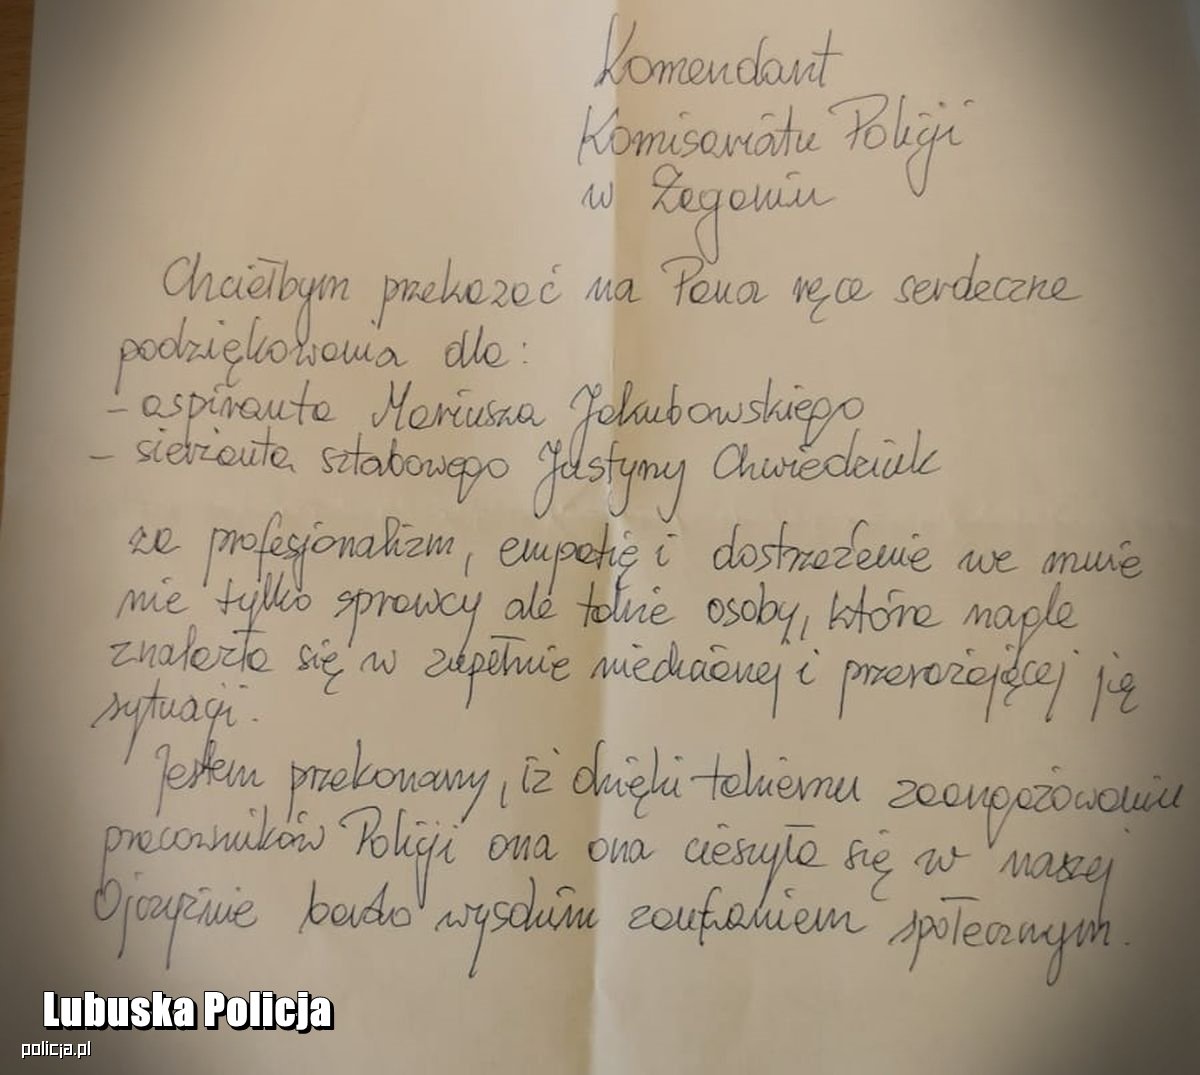 Komendant
Komisariatu Policji
w Żaganiu
Chciałbym przekazać na Pana ręce serdeczne
podziękowania dla:
- aspiranta Mariusza Jakubowskiego
- sierżanta sztabowego Justyny Chwiedziuk
za profesjonalizm, empatię i dostrzeżenie we mnie
nie tylko sprawcy ale także osoby, która nagle
znalazła się w zupełnie nieznanej i przerażającej ją
sytuacji.
Jestem przekonany, iż dzięki takiemu zaangażowaniu
pracowników Policji ona ona cieszyła się w naszej
Ojczyźnie bardzo wysokim zaufaniem społecznym.
Lubuska Policja
policja.pl